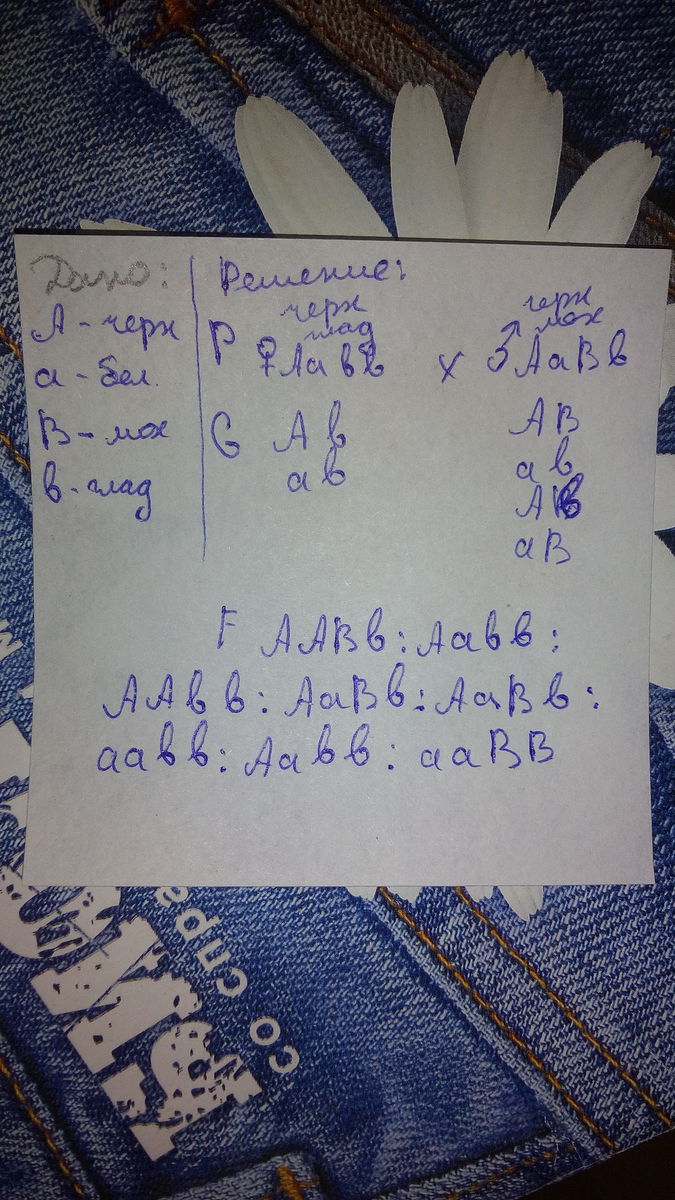 Дано:
А - черн
а - бел.
В - мох
в - глад
Решение:
черн
глад
Р ♀ Аавв х ♂ АаВв
черн
мох
G Ав
ав
АВ
ав
Ав
аВ
F ААВв : Аавв :
ААвв : АаВв : АаВв :
аавв : Аавв : ааВВ
со спра